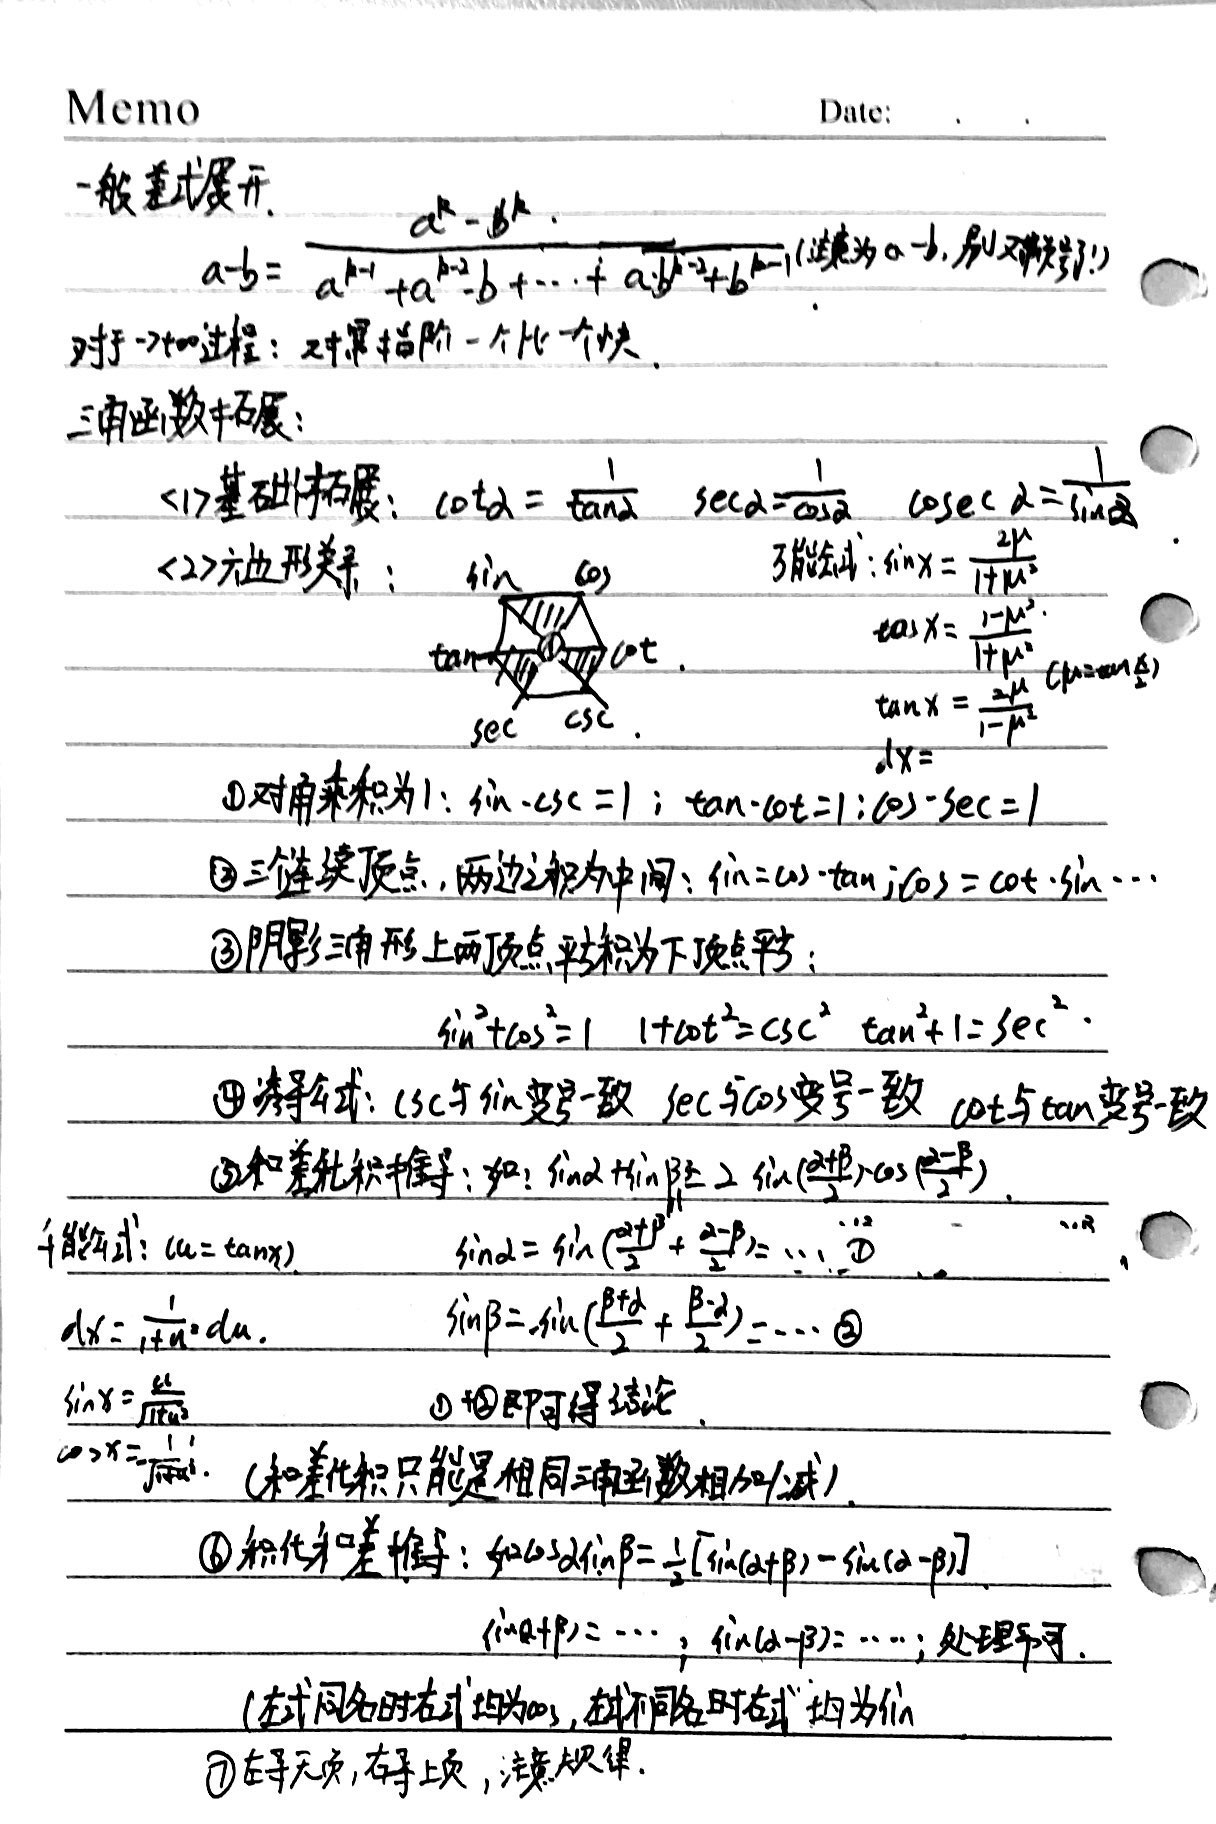 Memo Date: . .
一般差式展开.
a-b = (a^k - b^k) / (a^{k-1} + a^{k-2}·b + ··· + a·b^{k-2} + b^{k-1}) (注意为a-b,别又负号了!)
对于→+∞过程:对幂指阶一个比一个快.
三角函数拓展:
<1>基础拓展: cotα = 1/tanα secα = 1/cosα cosec α = 1/sinα
<2>六边形关系: 万能公式: sinx = 2μ/(1+μ²)
sin cos
cosx = (1-μ²)/(1+μ²)
tan 1 cot.
tanx = 2μ/(1-μ²) (μ=tan x/2)
sec csc.
dx=
①对角乘积为1: sin·csc=1; tan·cot=1; cos·sec=1
②三个连续顶点,两边之积为中间: sin=cos·tan; cos=cot·sin···
③阴影三角形上两顶点平方积为下顶点平方:
sin²+cos²=1 1+cot²=csc² tan²+1=sec².
④诱导公式: csc与sin变号一致 sec与cos变号一致 cot与tan变号一致
⑤和差化积推导:如: sinα+sinβ = 2 sin((α+β)/2)·cos((α-β)/2).
万能公式: (u=tanx) sinα = sin((α+β)/2 + (α-β)/2) = ··· ①
dx = 1/(1+u²) du. sinβ = sin((β+α)/2 + (β-α)/2) = ··· ②
sinx = u/√(1+u²) ①+②即可得结论.
cosx = 1/√(1+u²). (和差化积只能是相同三角函数相加/减).
⑥积化和差推导:如cosαsinβ = 1/2[sin(α+β) - sin(α-β)]
sin(α+β)=···; sin(α-β)=····;处理即可.
(左式同名时右式均为cos,左式不同名时右式均为sin
⑦左导天页,右导上页,注意规律.